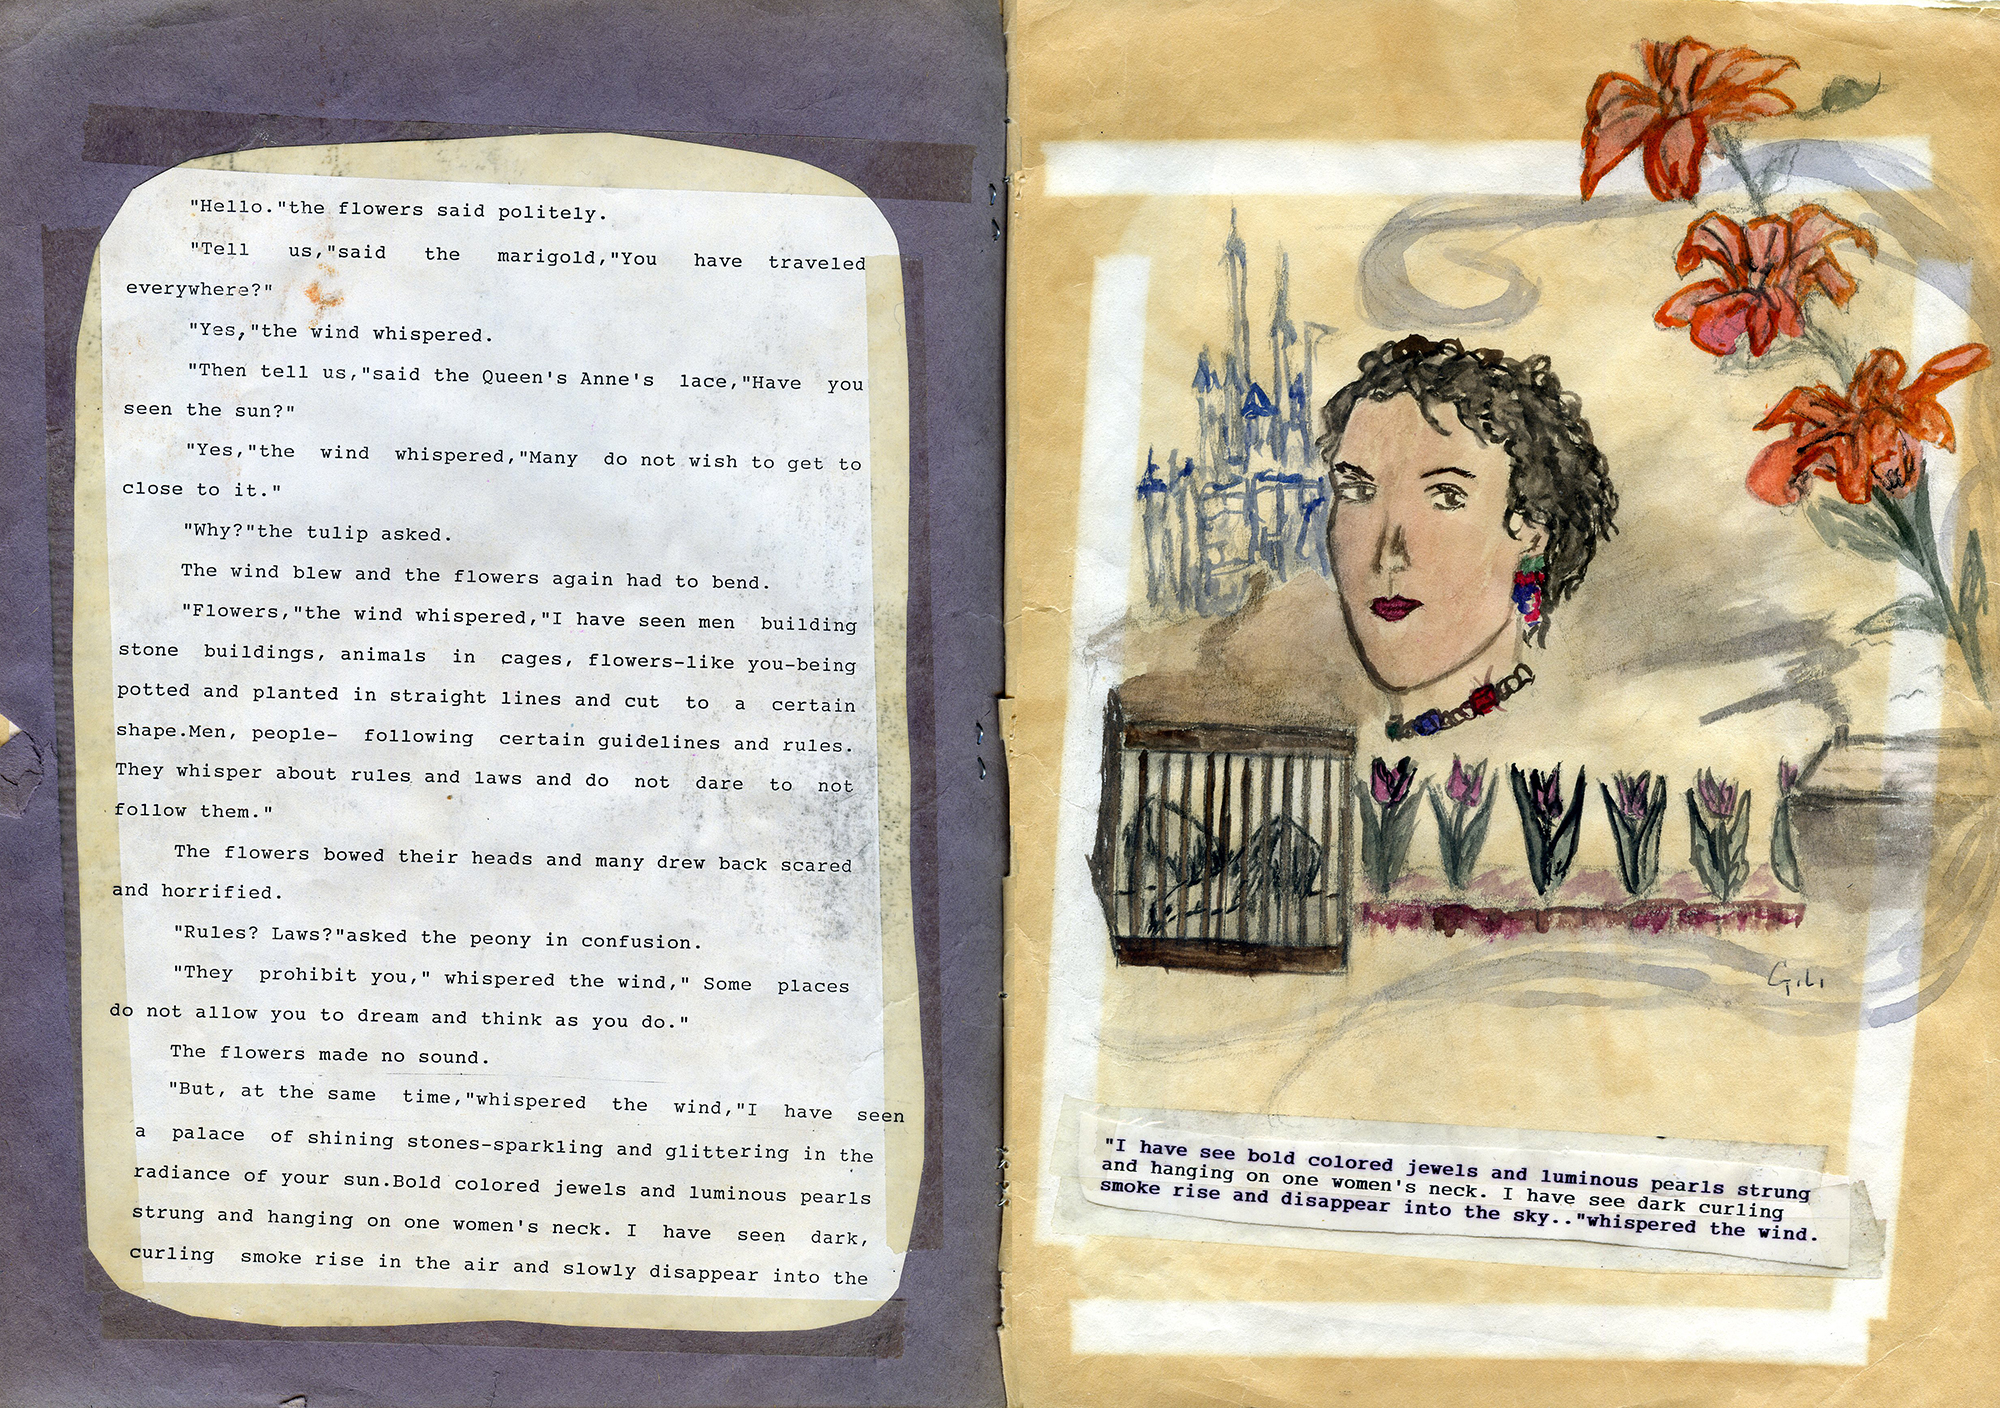 "Hello."the flowers said politely.
"Tell us,"said the marigold,"You have traveled
everywhere?"
"Yes,"the wind whispered.
"Then tell us,"said the Queen's Anne's lace,"Have you
seen the sun?"
"Yes,"the wind whispered,"Many do not wish to get to
close to it."
"Why?"the tulip asked.
The wind blew and the flowers again had to bend.
"Flowers,"the wind whispered,"I have seen men building
stone buildings, animals in cages, flowers-like you-being
potted and planted in straight lines and cut to a certain
shape.Men, people- following certain guidelines and rules.
They whisper about rules and laws and do not dare to not
follow them."
The flowers bowed their heads and many drew back scared
and horrified.
"Rules? Laws?"asked the peony in confusion.
"They prohibit you," whispered the wind," Some places
do not allow you to dream and think as you do."
The flowers made no sound.
"But, at the same time,"whispered the wind,"I have seen
a palace of shining stones-sparkling and glittering in the
radiance of your sun.Bold colored jewels and luminous pearls
strung and hanging on one women's neck. I have seen dark,
curling smoke rise in the air and slowly disappear into the
Gili
"I have see bold colored jewels and luminous pearls strung
and hanging on one women's neck. I have see dark curling
smoke rise and disappear into the sky.."whispered the wind.